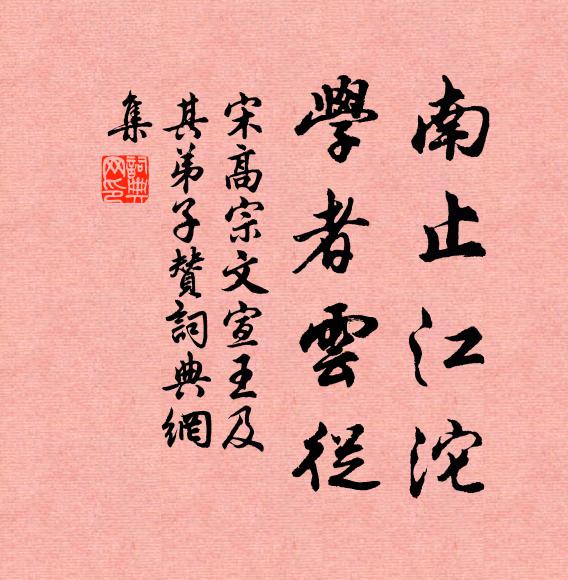 南止江沱
學者雲從
宋高宗文宣王及
其弟子贊詞典網
集
詞典網印